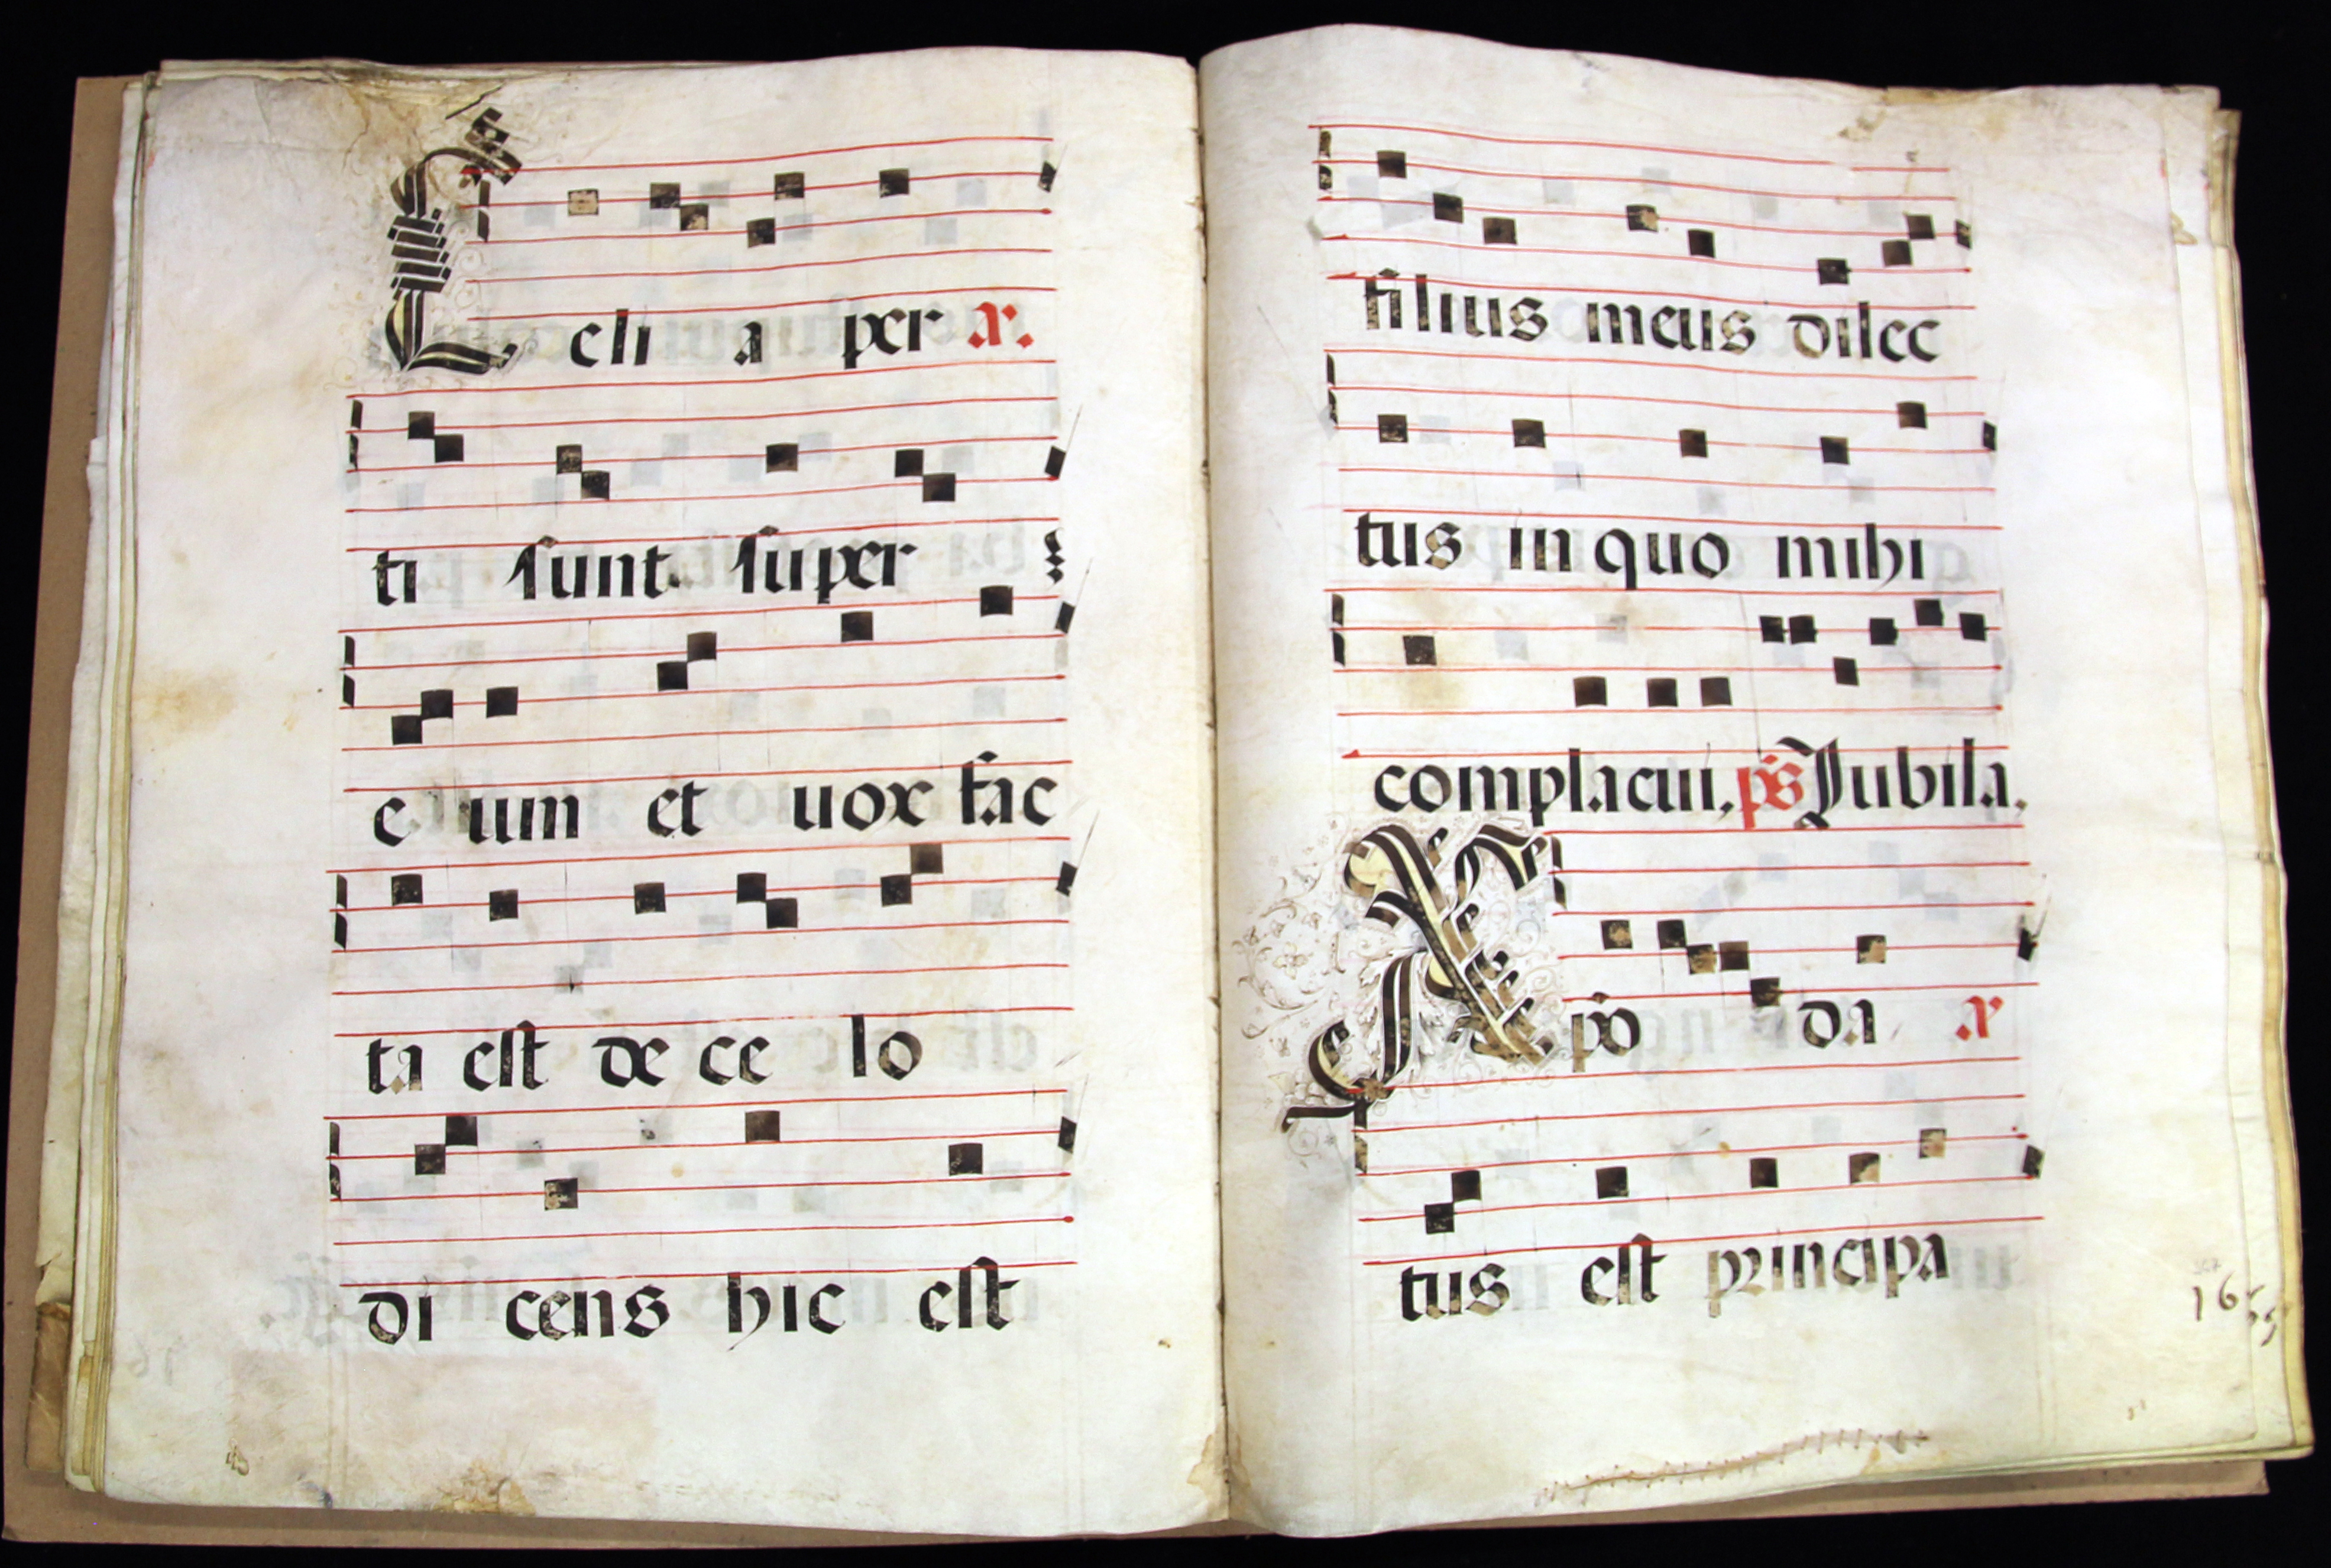 Celi a per ar.
ti sunt super
e um et uox fac
ta est de ce lo
di cens hic est
filius meus dilec
tus in quo mihi
complacui, ps Jubila.
Apo da ar
tus est principa